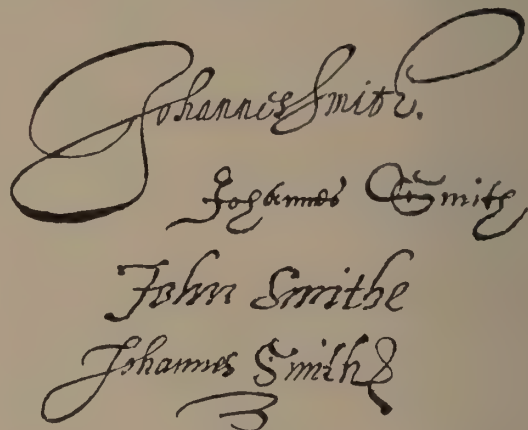 Johannes Smith.
Johannes Smith
John Smithe
Johannes Smith